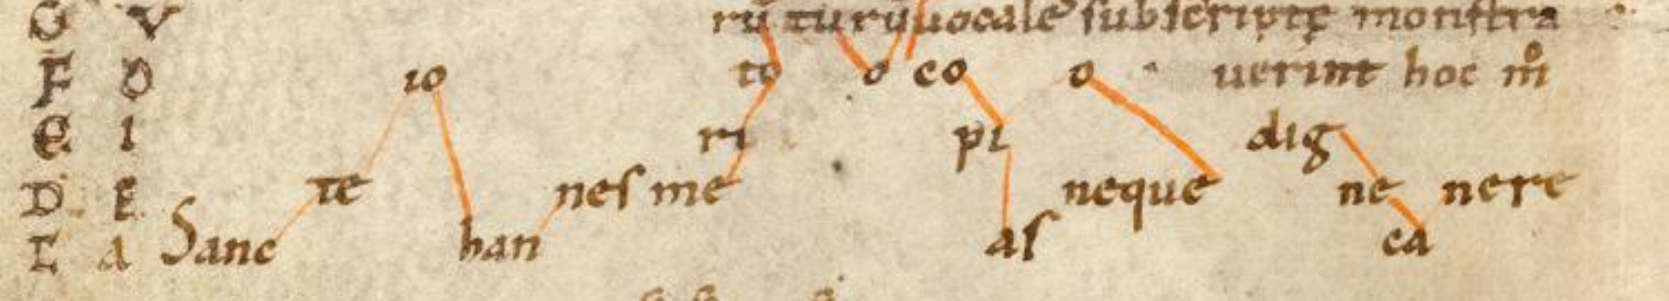 G V rū tu rū uocaleſ ſubſcriptę monſtra
F O io to o co o uerint hoc
E I ri pi dig
D E te neſ me neque ne nere
C A Sanc han aſ ca